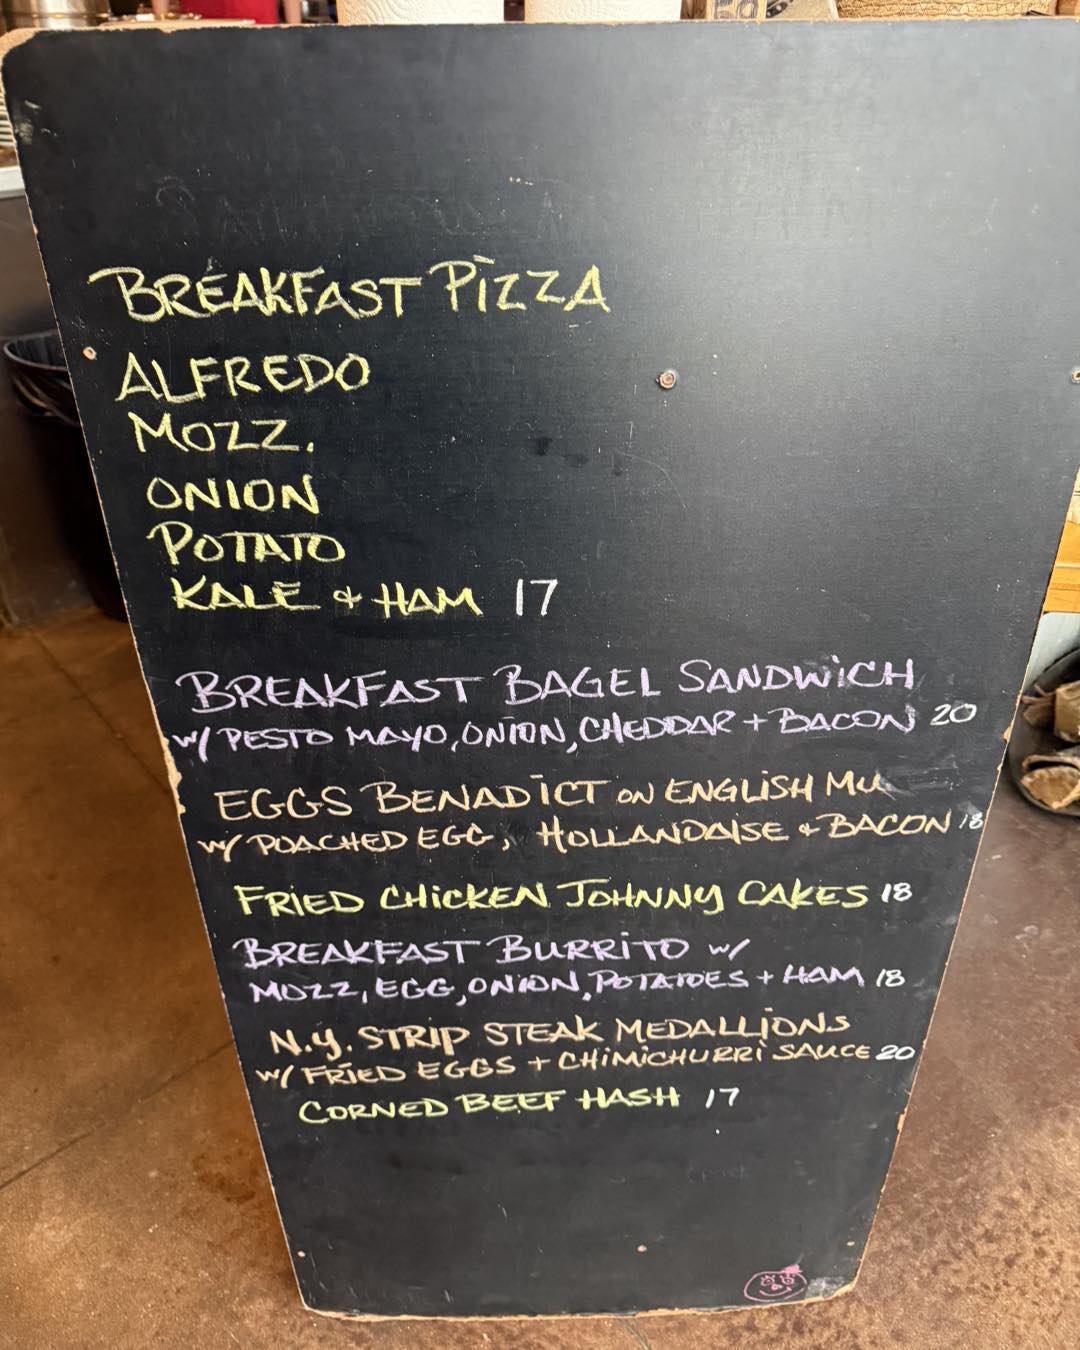 BREAKFAST PIZZA
ALFREDO
MOZZ.
ONION
POTATO
KALE & HAM 17
BREAKFAST BAGEL SANDWICH
W/ PESTO MAYO, ONION, CHEDDAR + BACON 20
EGGS BENADICT ON ENGLISH MU
W/ POACHED EGG, HOLLANDAISE & BACON 18
FRIED CHICKEN JOHNNY CAKES 18
BREAKFAST BURRITO W/
MOZZ, EGG, ONION, POTATOES + HAM 18
N.Y. STRIP STEAK MEDALLIONS
W/ FRIED EGGS + CHIMICHURRI SAUCE 20
CORNED BEEF HASH 17